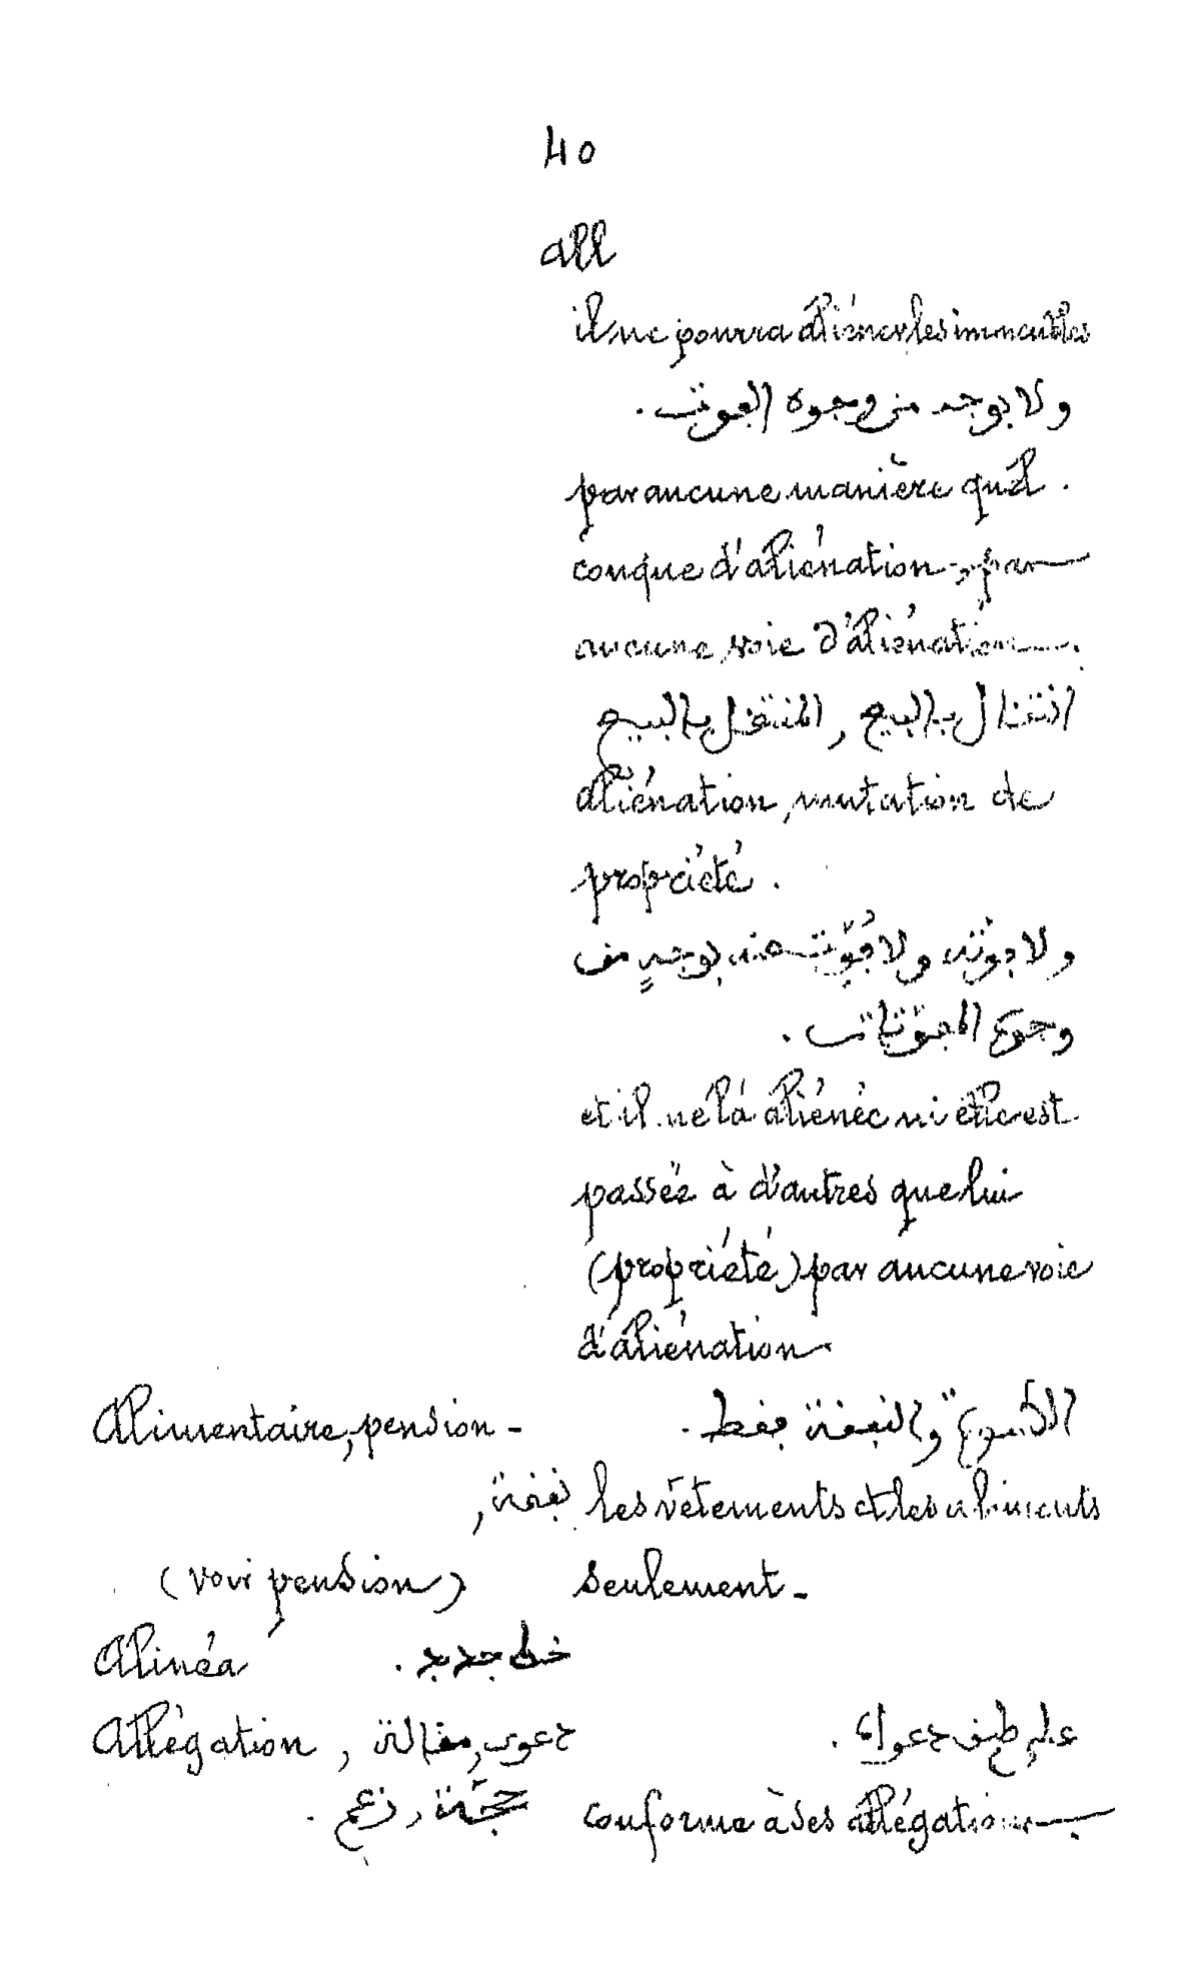 40
all
il ne pourra aliéner les immeubles
ولا بوجه من وجوه الفوت .
par aucune manière quel .
conque d'aliénation, par
aucune voie d'aliénation .
انتقال بالبيع , المنتقل بالبيع
aliénation, mutation de
propriété .
ولا فوّته ولا فُوِّتَ عنه بوجهٍ من
وجوه المفوّتات .
et il ne l'a aliénée ni elle est
passée à d'autres que lui
(propriété) par aucune voie
d'aliénation
Alimentaire, pension - والنفقة فقط .
نفقة , les vêtements et les aliments
(voir pension) seulement -
Alinéa خط جديد .
Allégation , دعوى, مقالة على طبق دعواه .
حجّة , زعم . conforme à ses allégations .